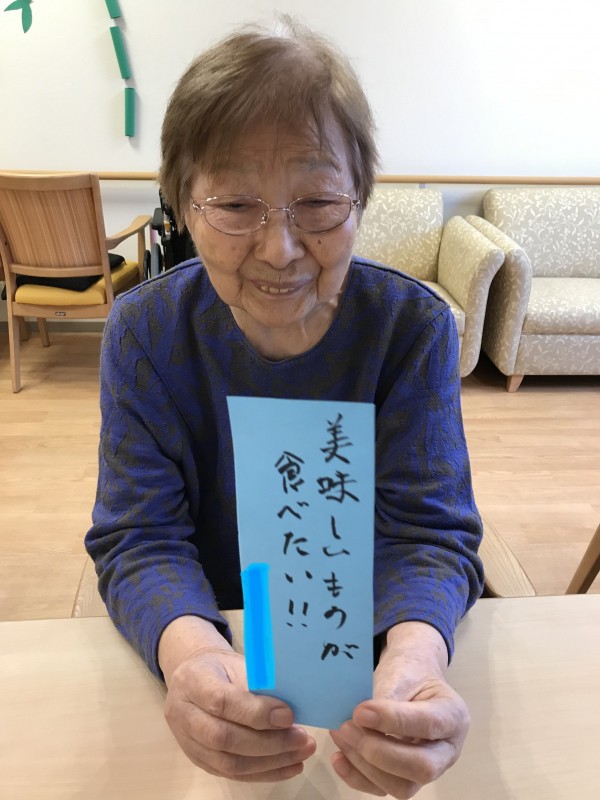 美味しいものが
食べたい!!